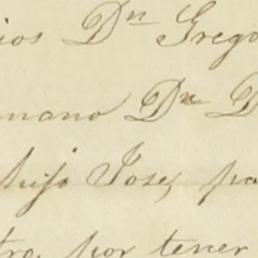 ios Dn Grego
mano Dn D
hijo Jose, pa
tro por tener